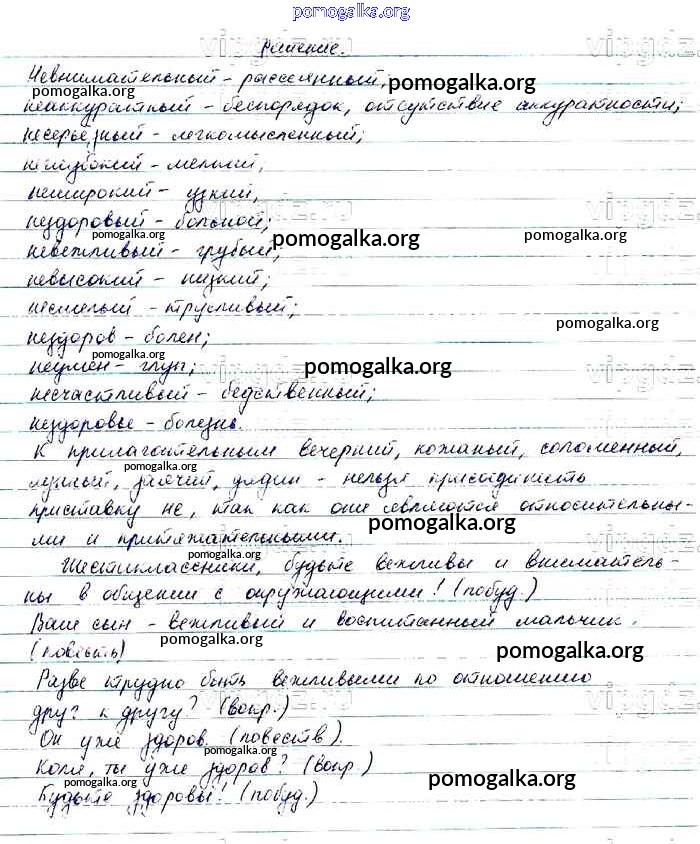 pomogalka.org
Решение.
Невнимательный - рассеянный,
pomogalka.org
pomogalka.org
неаккуратный - беспорядок, отсутствие аккуратности;
несерьезный - легкомысленный;
неглубокий - мелкий,
неширокий - узкий,
нездоровый - больной;
pomogalka.org
pomogalka.org
pomogalka.org
невежливый - грубый;
невысокий - низкий;
несмелый - трусливый;
pomogalka.org
нездоров - болен;
pomogalka.org
неумен - глуп;
pomogalka.org
несчастливый - бедственный;
нездоровье - болезнь.
К прилагательным вечерний, кожаный, соломенный,
pomogalka.org
лунный, заячий, дядин - нельзя присоединить
приставку не, так как они являются относительны-
pomogalka.org
ми и притяжательными.
pomogalka.org
Шестиклассники, будьте вежливы и вниматель-
ны в общении с окружающими! (побуд.)
Ваш сын - вежливый и воспитанный мальчик.
pomogalka.org
(повесть)
pomogalka.org
Разве трудно быть вежливыми по отношению
друг к другу? (вопр.)
Он уже здоров. (повеств).
pomogalka.org
Коля, ты уже здоров? (вопр.)
pomogalka.org
pomogalka.org
Будьте здоровы! (побуд.)